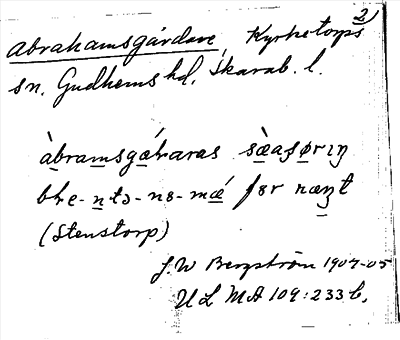 2
Abrahamsgårdare, Kyrketorps
sn. Gudhems hd, Skarab. l.
àbramsgǽraras sæ̀aʂørıꞃ
bre-ntɔ-ns-mǽ før næꞃt
(Stenstorp)
J. W Bergström 1904-05
ULMA 109:233 b.